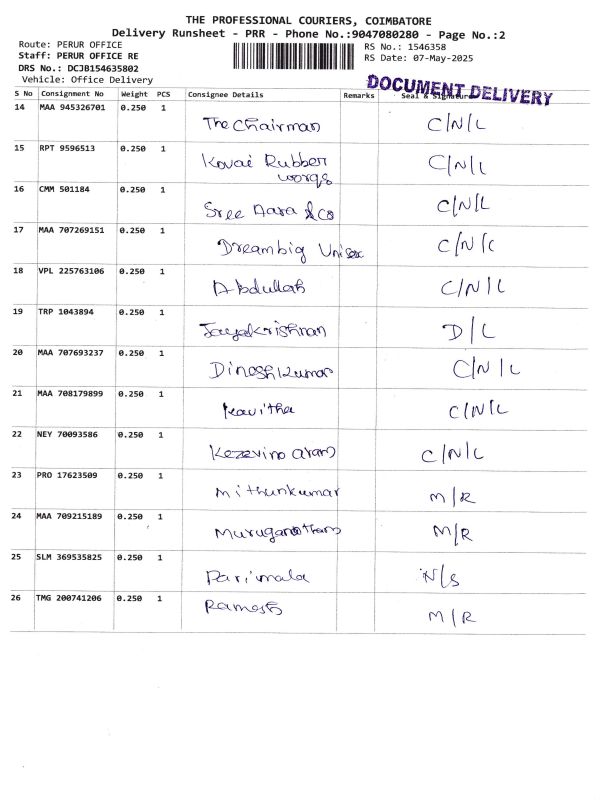 THE PROFESSIONAL COURIERS, COIMBATORE
Delivery Runsheet - PRR - Phone No.:9047080280 - Page No.:2
Route: PERUR OFFICE
Staff: PERUR OFFICE RE
DRS No.: DCJB154635802
Vehicle: Office Delivery
RS No.: 1546358
RS Date: 07-May-2025
DOCUMENT DELIVERY
S No Consignment No Weight PCS Consignee Details Remarks Seal & Signature
14 MAA 945326701 0.250 1 The Chairman C/N/L
15 RPT 9596513 0.250 1 Kovai Rubber worqs C/N/L
16 CMM 501184 0.250 1 Sree Aara & Co C/N/L
17 MAA 707269151 0.250 1 Dreambig Unisex C/N/C
18 VPL 225763106 0.250 1 Abdullah C/N/L
19 TRP 1043894 0.250 1 Jayakrishnan D/L
20 MAA 707693237 0.250 1 Dineshkumar C/N/L
21 MAA 708179899 0.250 1 Kavitha C/N/L
22 NEY 70093586 0.250 1 C/N/L
23 PRO 17623509 0.250 1 Mithunkumar M/R
24 MAA 709215189 0.250 1 M/R
25 SLM 369535825 0.250 1 Parimala N/S
26 TMG 200741206 0.250 1 Ramesh M/R